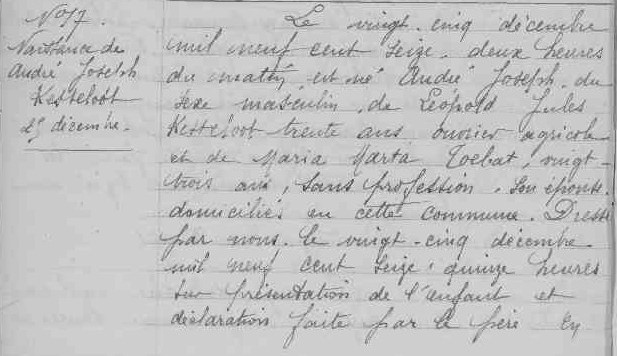 No 17.
Naissance de
André Joseph
Kesteloot
25 décembre.
Le vingt-cinq décembre
mil neuf cent seize. deux heures
du matin est né André Joseph. du
sexe masculin. de Léopold Jules
Kesteloot trente ans ouvrier agricole
et de Maria Marta Toebat, vingt-
trois ans, sans profession. son épouse.
domiciliés en cette commune. Dressé
par nous. le vingt-cinq décembre
mil neuf cent seize, quinze heures
sur présentation de l'enfant et
déclaration faite par le père En